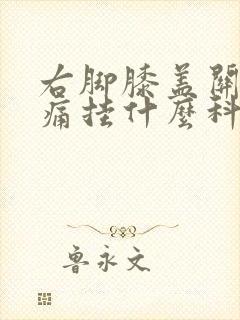 右脚膝盖關
痛挂什麼科
魯永文